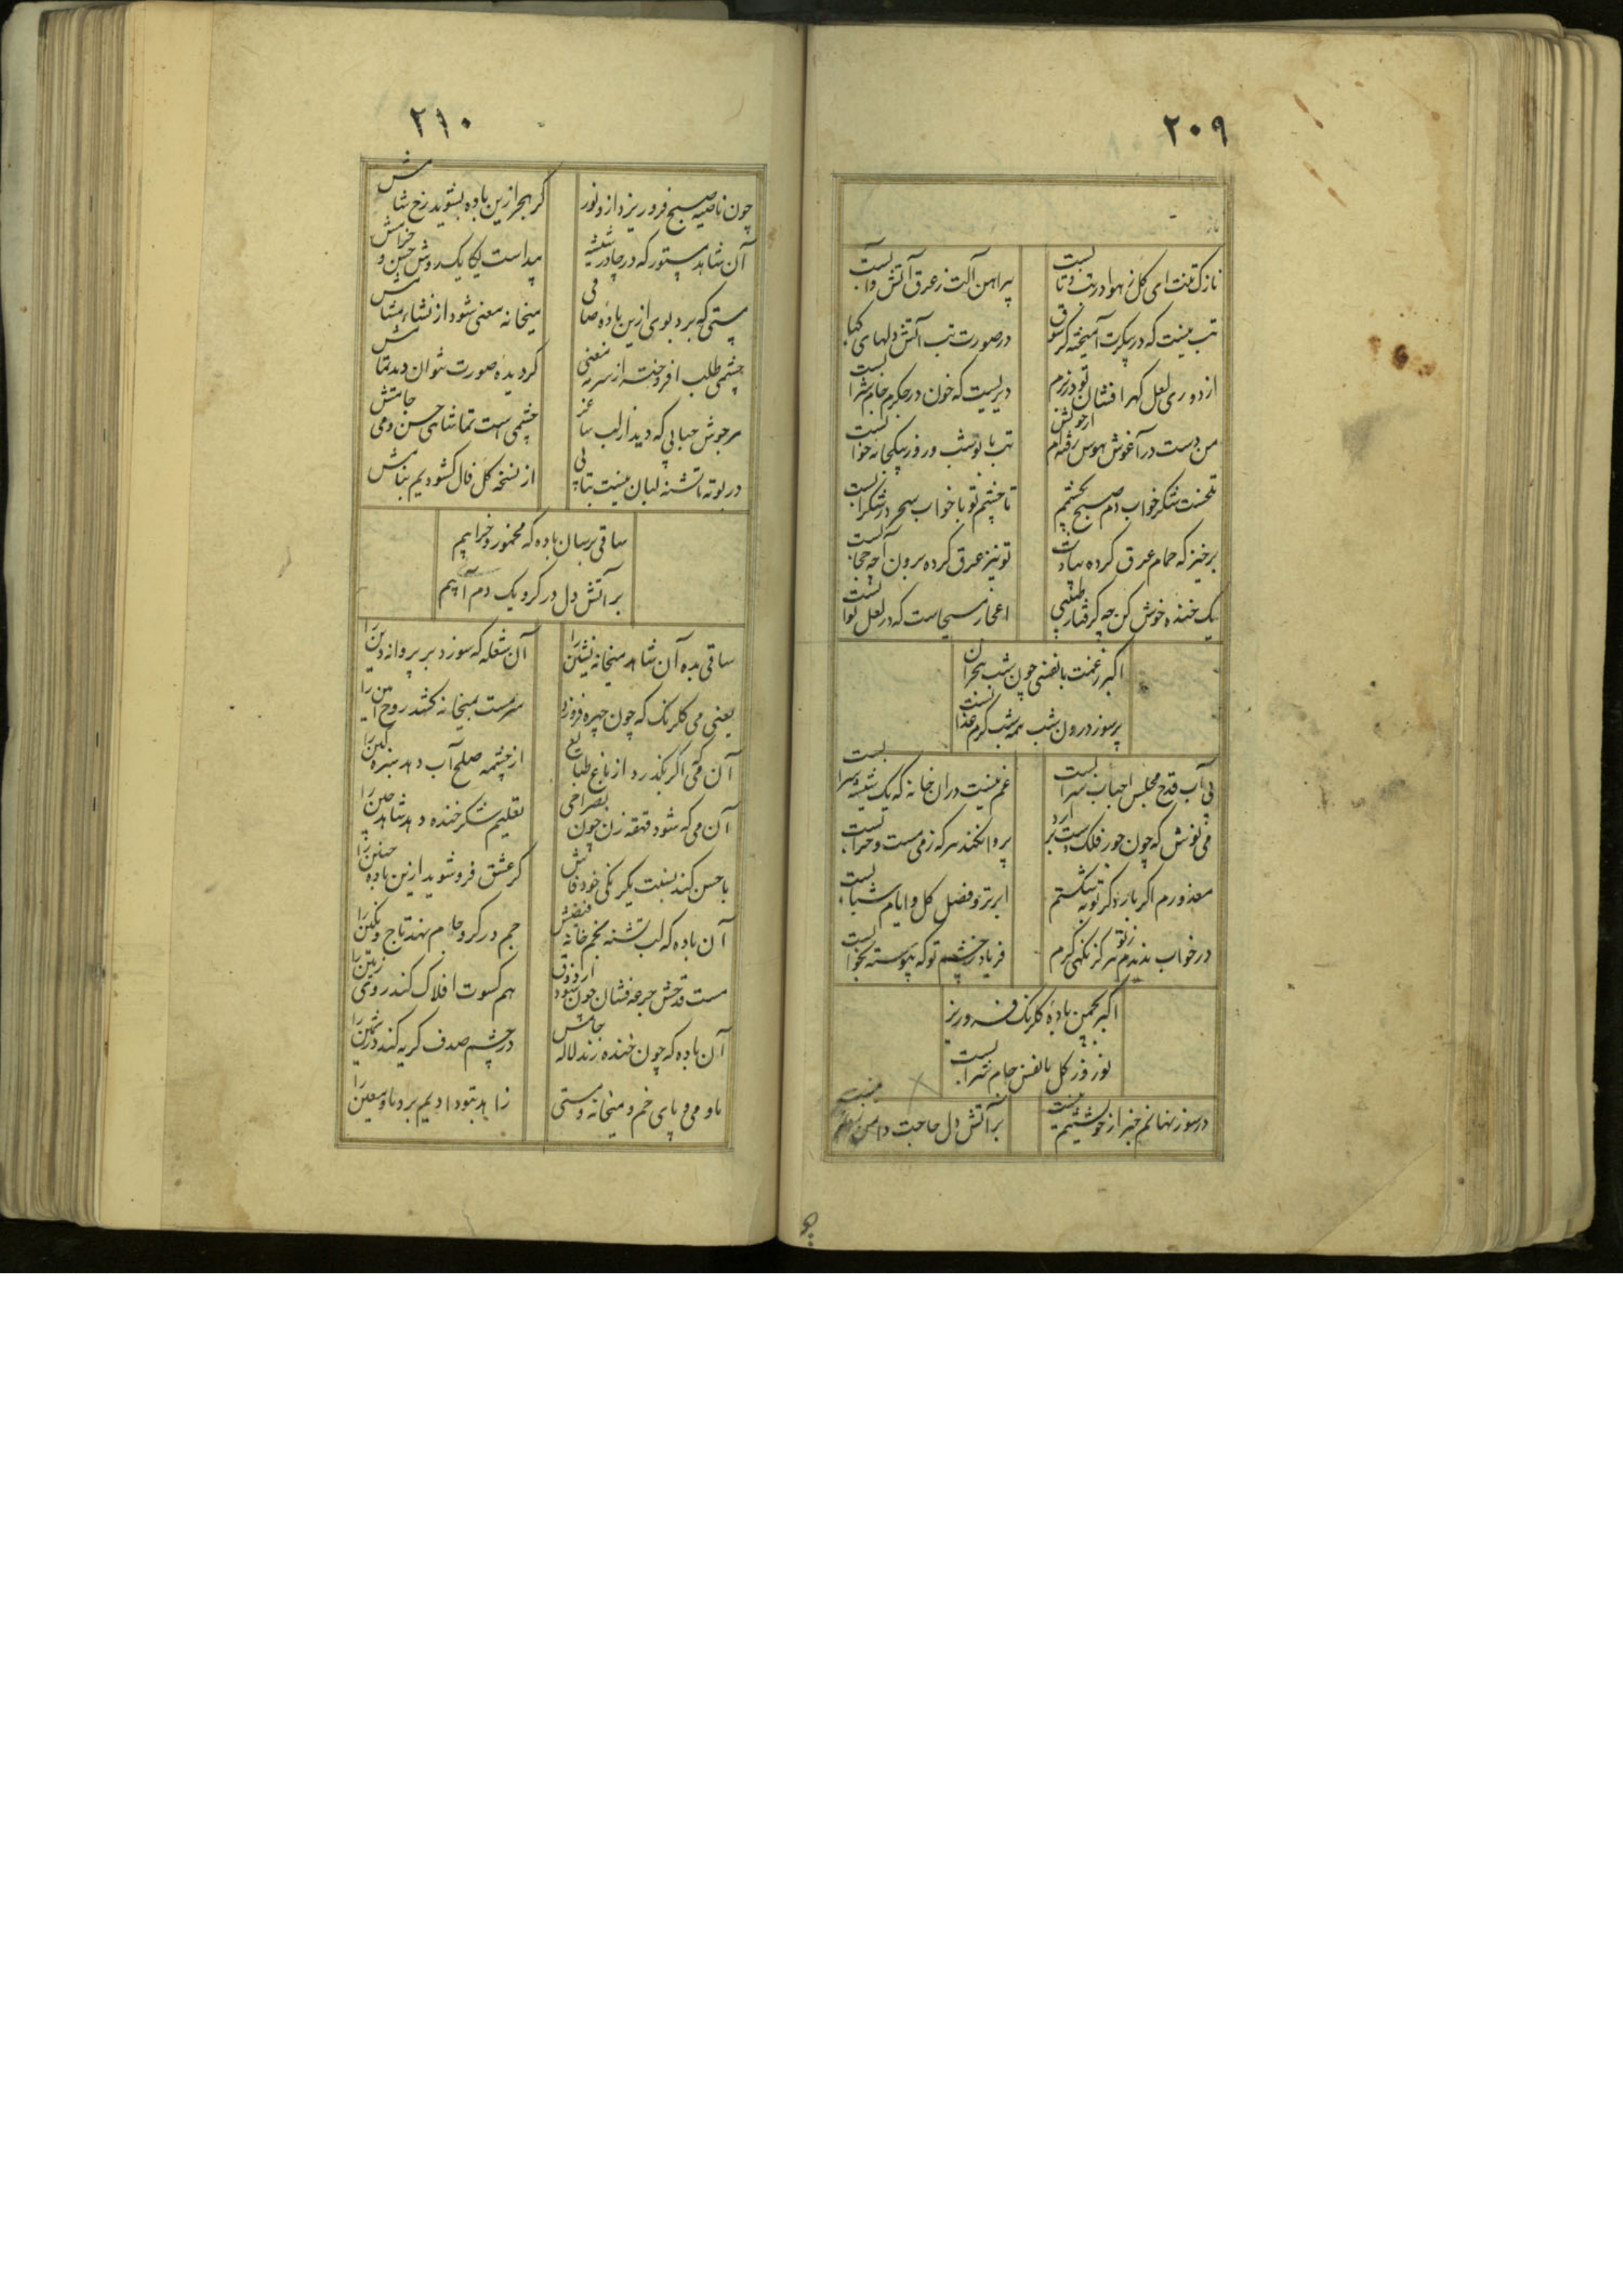 ۲۰۹
نازک تنت ای گل ز هوا در تب و تابست
پیراهن آلت ز عرق آتش و آبست
تب نیست که در پیکرت آمیخته کز شوق
در صورت تب آتش دلهای کبابست
از دوری لعل گهر افشان تو در بزم
دیریست که خون در جگرم جام شرابست
من دست در آغوش هوس رفته ام از خویش
تب با تو شب و روز بیکجانه خوابست
تلخست شکر خواب دم صبح بچشمم
تا چشم تو با خواب سحر در شکرابست
برخیز که حمام عرق کرده سادت
تو نیز عرق کرده برون آ چه حجابست
یک خنده خوش کن چه گرفتار طبیبی
اعجاز مسیحاست که در لعل تو آبست
اکبر ز غمت با نفسی چون شب بحران
پرسوز درون شب همه شب گرم عذابست
بی آب قدح مجلس احباب سرابست
غم نیست در آن خانه که یک شیشه شرابست
می نوش که چون جور فلک دست برآرد
پروا نکند هر که ز می مست و خرابست
معذورم اگر باز دگر توبه شکستم
ابر تر و فصل گل و ایام شبابست
در خواب ندیدم ز تو هرگز نگهی گرم
فریاد ز چشم تو که پیوسته بخوابست
اکبر بچمن باده گلرنگ فرو ریز
نوروز گل با نفس جام شرابست
در سوز نهانم خبر از خویشتنم نیست
بر آتش دل حاجت دامن زدنم نیست
۲۱۰
چون ناصیه صبح فرو ریزد ازو نور
گر هجر ازین باده بشوید رخ شامش
آن شاهد مستور که در چادر شیشه
پیداست یکایک روش حسن و خرامش
مستی که برد بوی ازین باده صافی
میخانه معنی شود از نشاء مشامش
چشمی طلب افروخته از سرمه معنی
کز دیده صورت نتوان دید تمامش
سرجوش حبابی که دید از لب ساغر
چشمی است تماشای حسن و می جامش
در بوته ما تشنه لبان نیست بتابی
از نسخه گل فال گشودیم بنامش
ساقی برسان باده که مخمور و خرابیم
بر آتش دل در گرو یک دم آبیم
ساقی بده آن شاهد میخانه نشین را
آن شعله که سوزد بر پروانه دین را
یعنی می گلرنگ که چون چهره فروزد
سرمست بمیخانه کشد روح امین را
آن می که اگر بگذرد از باغ طبایع
از چشمه صلح آب دهد سبزه کین را
آن می که شود قهقه زن چون بصراحی
تعلیم شکر خنده دهد شاهد چین را
با حسن کند نسبت یکرنگی خود فاش
گر عشق فرو شوید ازین باده جبین را
آن باده که لب تشنه بخمخانه فیضش
جم در گرو جام نهد تاج و نگین را
مست قدحش جرعه فشان چون شود از ذوق
هم کسوت افلاک کند روی زمین را
آن باده که چون خنده زند لاله جامش
در چشم صدف گریه کند در ثمین را
ما و می و پای خم و میخانه و مستی
زاهد بتو دادیم برو ماء معین را